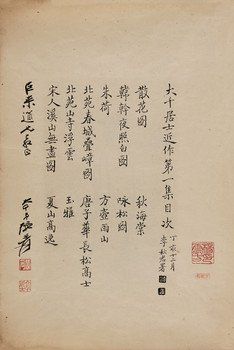 大千居士近作第一集目次
丁亥十二月
李秋君署
散花圖
秋海棠
韓幹夜照白圖
咏松圖
朱荷
方壺雨山
北苑春城疊嶂圖
唐子華長松高士
北苑山寺浮雲
玉雅
宋人溪山無盡圖
夏山高逸